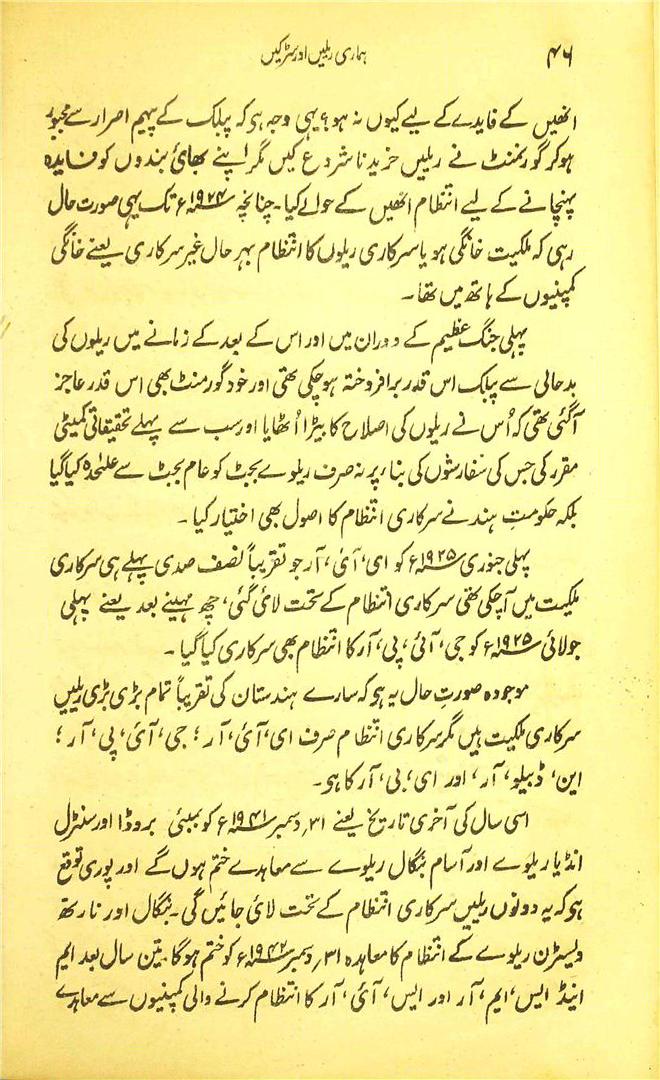 ۴۶
ہماری ریلیں اور سڑکیں
انھیں کے فایدے کے لیے کیوں نہ ہو؟ یہی وجہ ہی کہ پبلک کے پیہم اصرار سے مجبور
ہوکر گورنمنٹ نے ریلیں خریدنا شروع کیں مگر اپنے بھائی بندوں کو فایدہ
پہنچانے کے لیے انتظام انھیں کے حوالے کیا۔ چنانچہ ۱۹۲۴ء تک یہی صورت حال
رہی کہ ملکیت خانگی ہو یا سرکاری ریلوں کا انتظام بہر حال غیر سرکاری یعنے خانگی
کمپنیوں کے ہاتھ میں تھا۔
پہلی جنگ عظیم کے دوران میں اور اس کے بعد کے زمانے میں ریلوں کی
بدحالی سے پبلک اس قدر برافروختہ ہوچکی تھی اور خود گورمنٹ بھی اس قدر عاجز
آگئی تھی کہ اُس نے ریلوں کی اصلاح کا بیڑا اُٹھایا اور سب سے پہلے تحقیقاتی کمیٹی
مقرر کی جس کی سفارشوں کی بناء پر نہ صرف ریلوے بجٹ کو عام بجٹ سے علٰحدہ کیا گیا
بلکہ حکومتِ ہند نے سرکاری انتظام کا اصول بھی اختیار کیا۔
پہلی جنوری ۱۹۲۵ء کو ای، آئی، آر جو تقریباً نصف صدی پہلے ہی سرکاری
ملکیت میں آچکی تھی سرکاری انتظام کے تحت لائی گئی، چھ مہینے بعد یعنے پہلی
جولائی ۱۹۲۵ء کو جی، آئی، پی، آر کا انتظام بھی سرکاری کیا گیا۔
موجودہ صورتِ حال یہ ہی کہ سارے ہندستان کی تقریباً تمام بڑی بڑی ریلیں
سرکاری ملکیت ہیں مگر سرکاری انتظام صرف ای، آئی، آر؛ جی، آئی، پی، آر؛
این، ڈبیلو، آر، اور ای، بی، آر کا ہی۔
اسی سال کی آخری تاریخ یعنے ۳۱؍ دسمبر ۱۹۴۱ء کو بمبئی بروڈا اور سنٹرل
انڈیا ریلوے اور آسام بنگال ریلوے سے معاہدے ختم ہوں گے اور پوری توقع
ہی کہ یہ دونوں ریلیں سرکاری انتظام کے تحت لائی جائیں گی۔ بنگال اور نارتھ
ویسٹرن ریلوے کے انتظام کا معاہدہ ۳۱؍ دسمبر ۱۹۴۲ء کو ختم ہوگا۔ تین سال بعد ایم
اینڈ ایس، ایم، آر اور ایس، آئی، آر کا انتظام کرنے والی کمپنیوں سے معاہدے